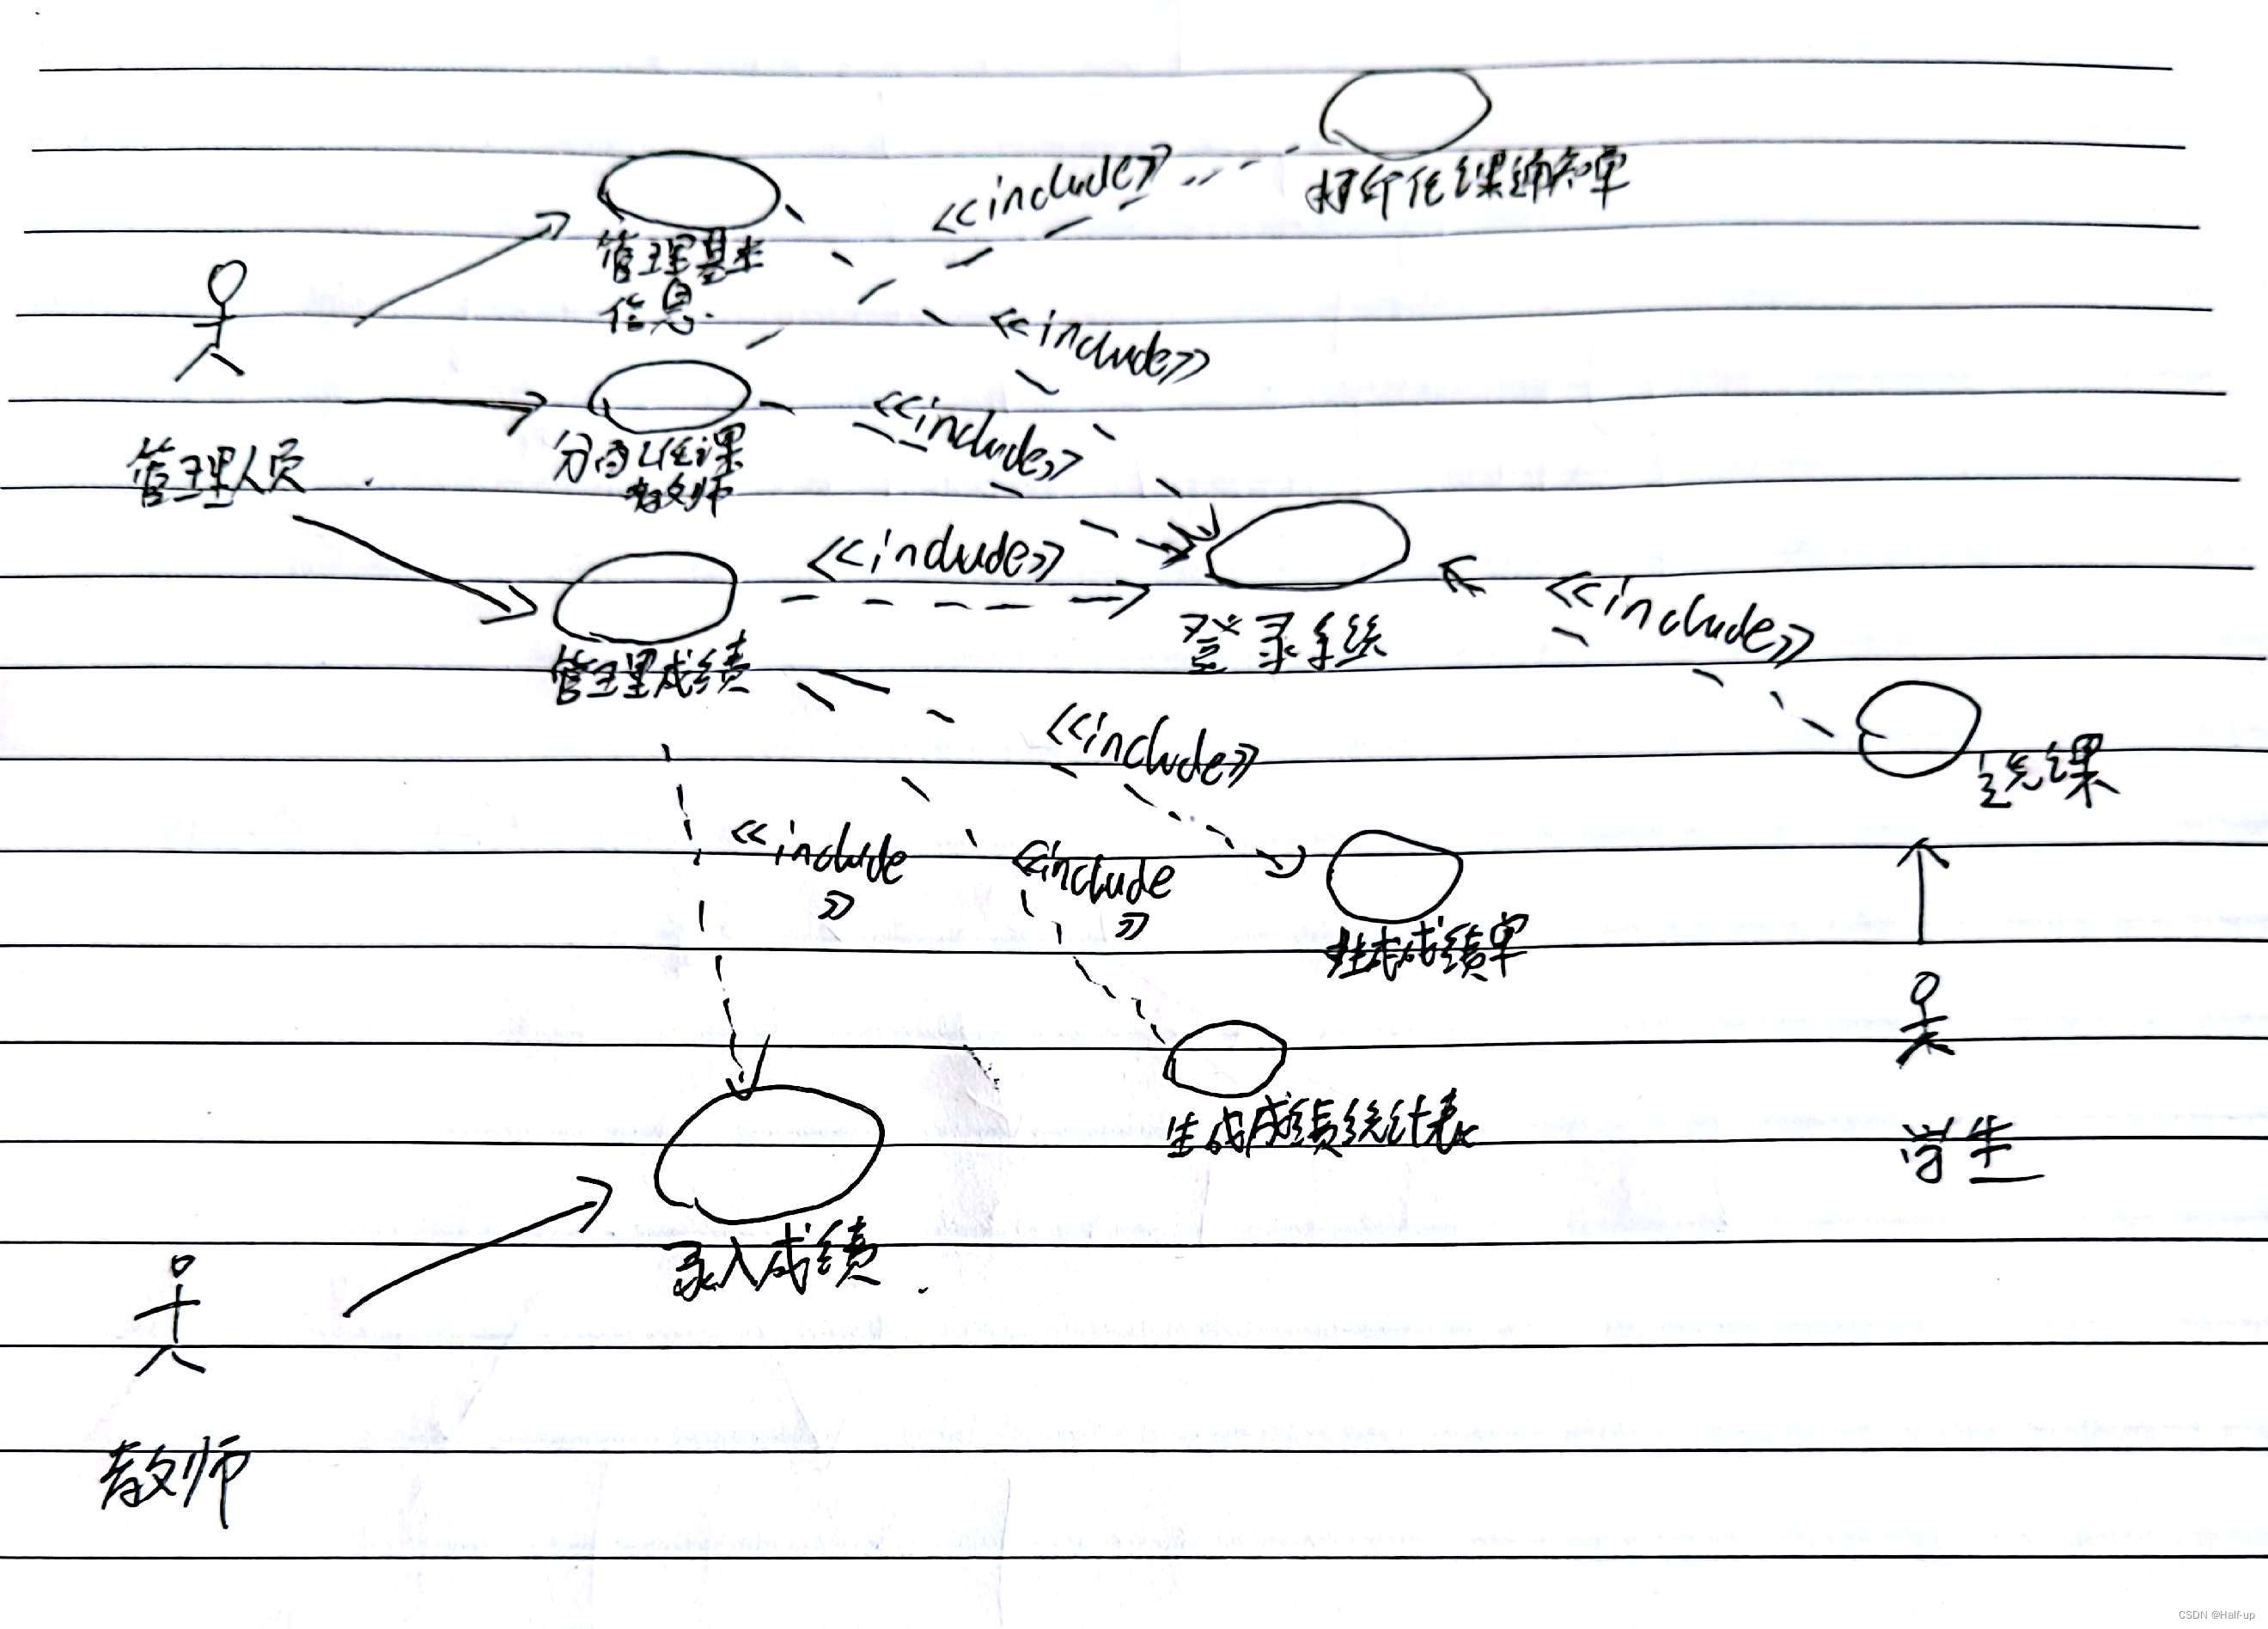 <<include>>
打印任课通知单
管理基本
信息.
<<include>>
<<include>>
分配任课
教师
管理人员
<<include>>
登录系统
<<include>>
管理成绩
<<include>>
选课
<<include
>>
<<include
>>
成绩单
生成成绩统计表
学生
录入成绩
教师
CSDN @Half-up